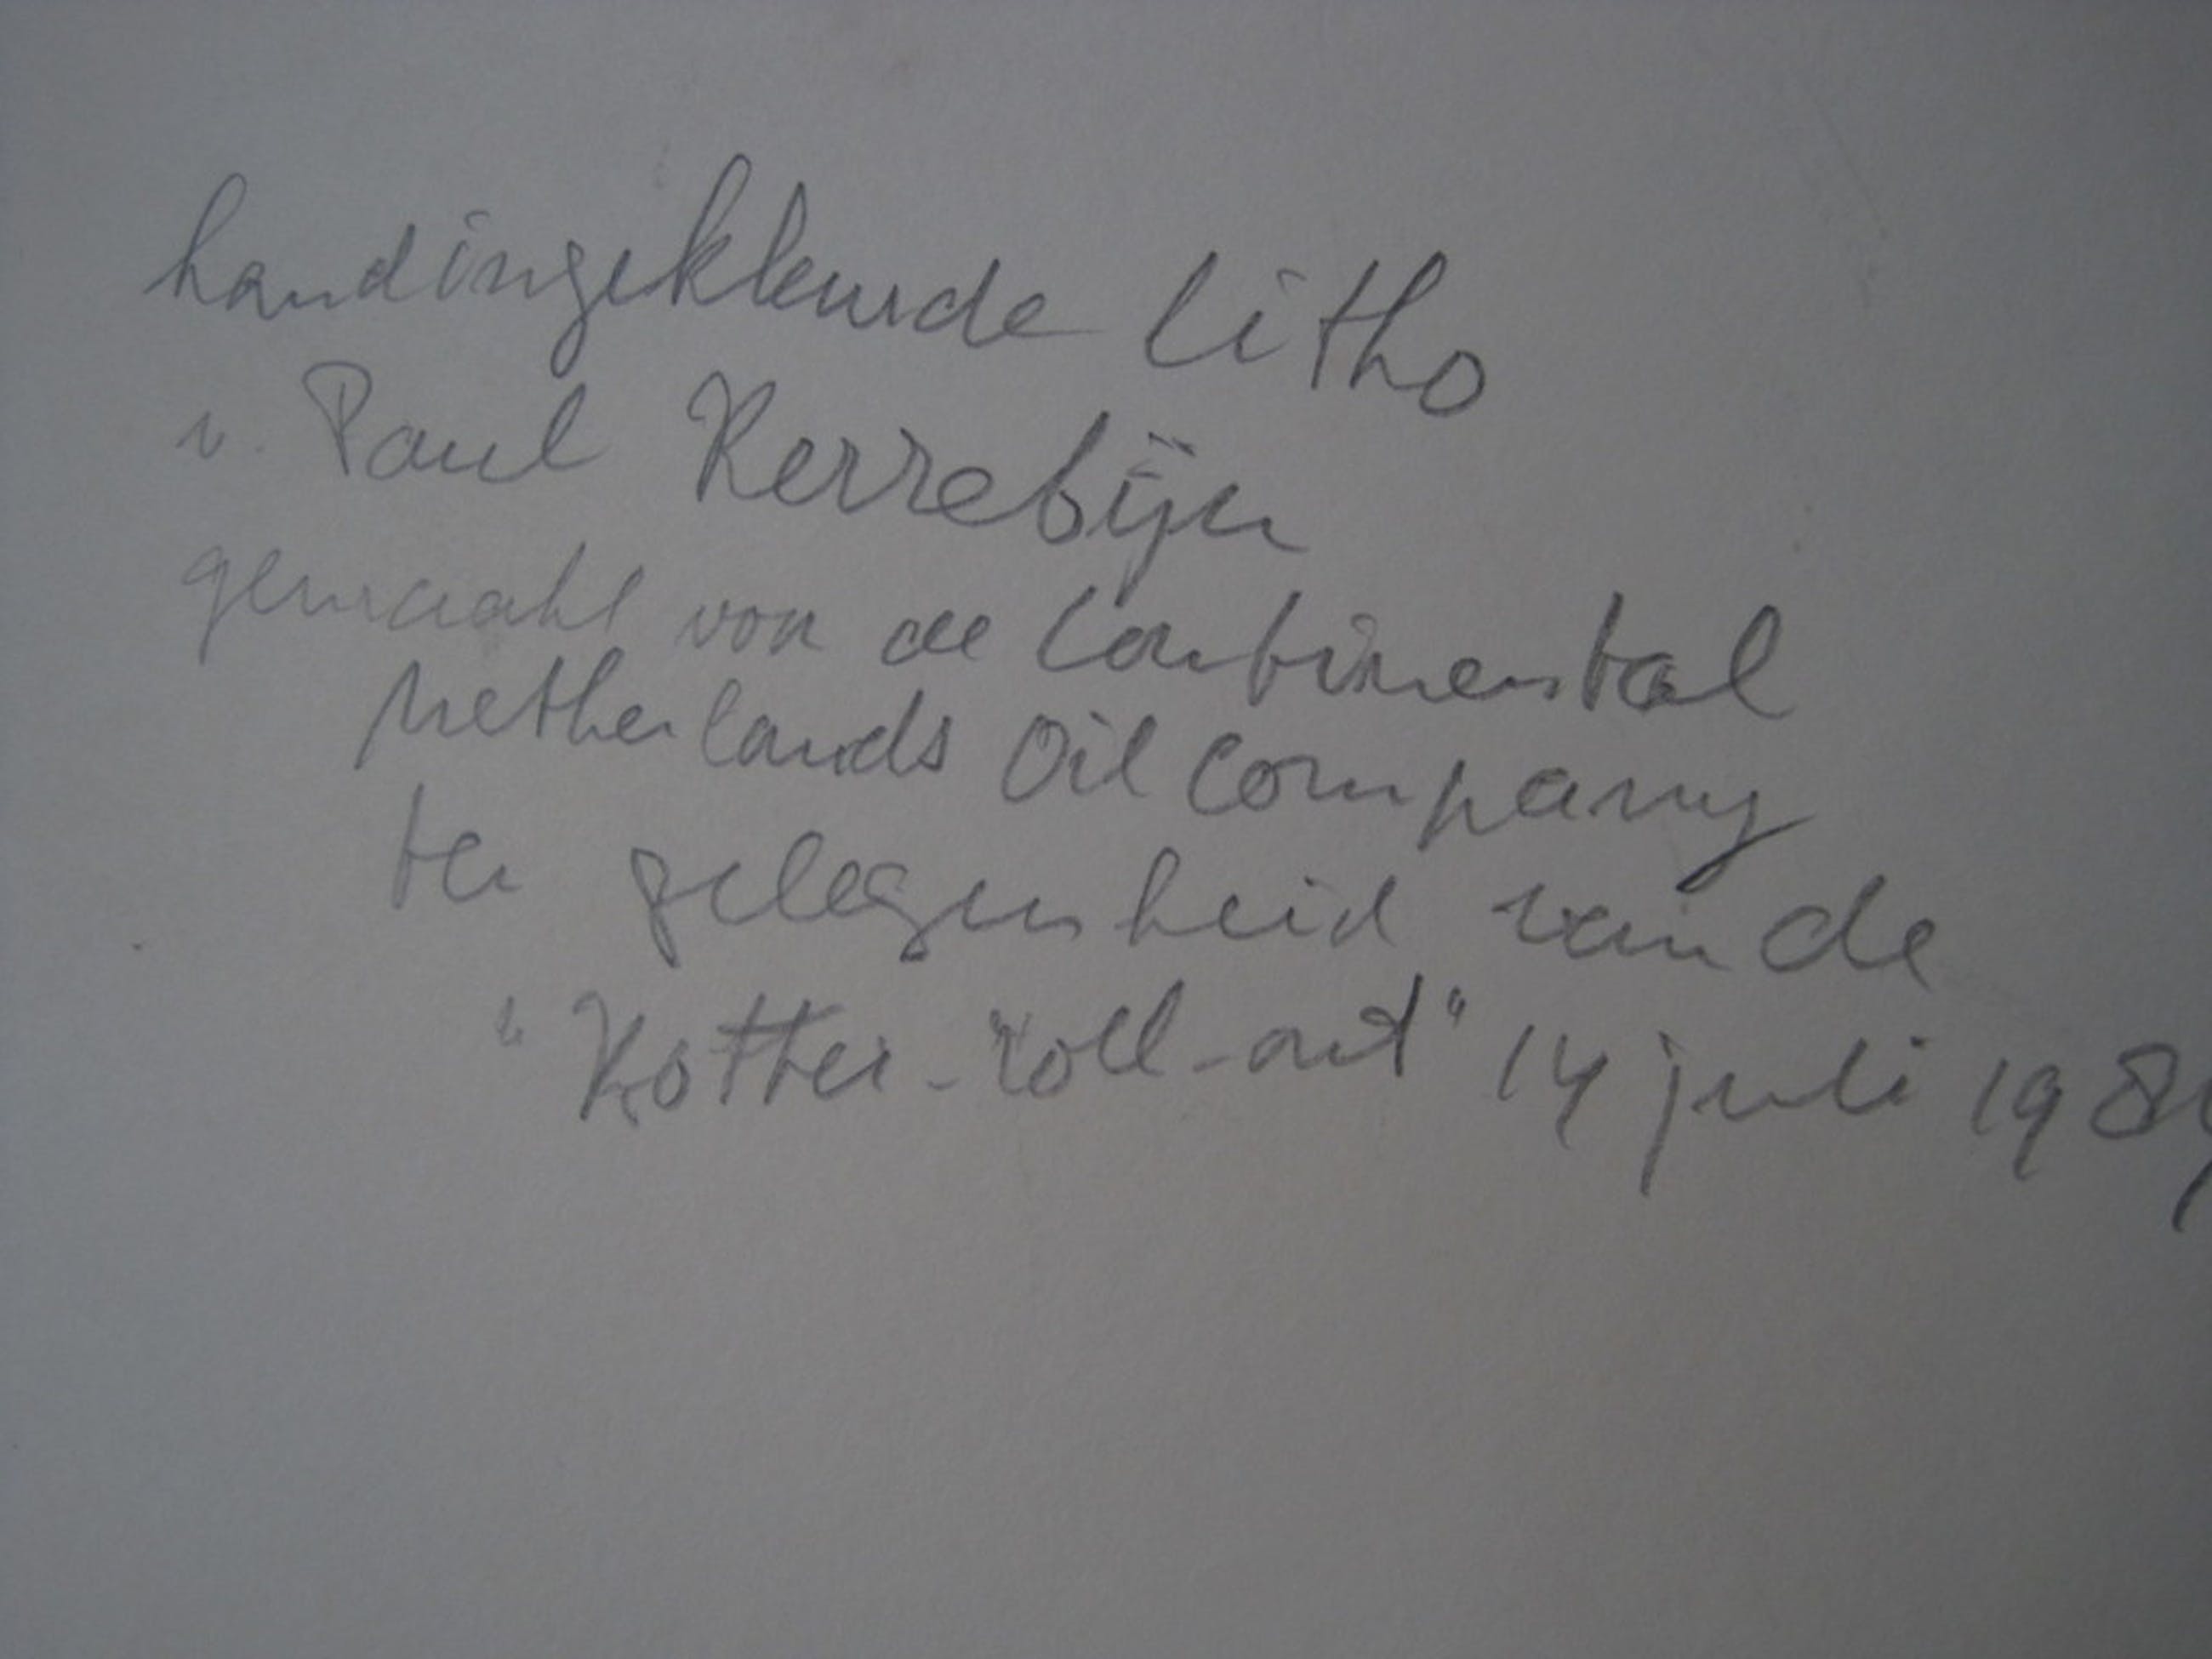 handingekleurde litho
v. Paul Kerrebijn
gemaakt voor de Continental
Netherlands Oil Company
ter gelegenheid van de
"Kotter-roll-out" 14 juli 198